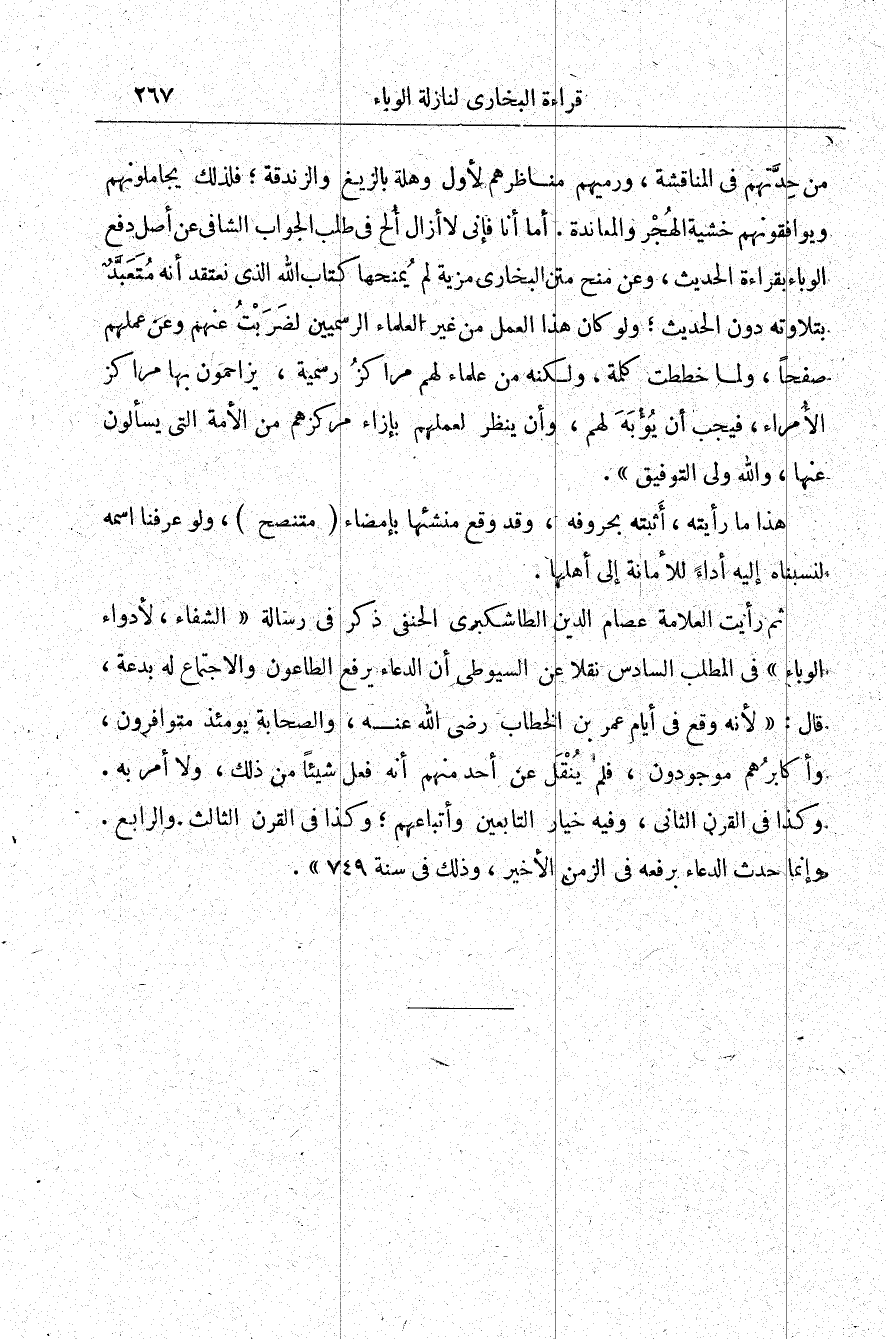 قراءة البخارى لنازلة الوباء ٢٦٧
من حِدَّتهم فى المناقشة ، ورميهم منـاظرهم لأول وهلة بالزيغ والزندقة ؛ فلذلك يجاملونهم
ويوافقونهم خشية الهُجْر والمعاندة . أما أنا فإنى لا أزال أُلح فى طلب الجواب الشافى عن أصل دفع
الوباء بقراءة الحديث ، وعن منح متن البخارى مزية لم يُمنحها كتاب الله الذى نعتقد أنه مُتَعَبَّدٌ
بتلاوته دون الحديث ؛ ولو كان هذا العمل من غير العلماء الرسميين لضَرَبْتُ عنهم وعن عملهم
صفحاً ، ولمـا خططت كلمة . ولـكنه من علماء لهم مراكزُ رسمية ، يزاحمون بها مراكز
الأُمراء ، فيجب أن يُؤْبَهَ لهم ، وأن ينظر لعملهم بإزاء مركزهم من الأمة التى يسألون
عنها ، والله ولى التوفيق » .
هذا ما رأيته ، أَثبته بحروفه ، وقد وقع منشئها بإمضاء ( متنصح ) ، ولو عرفنا اسمه
لنسبناه إليه أداءً للأمانة إلى أهلها .
ثم رأيت العلامة عصام الدين الطاشكبرى الحنفى ذكر فى رسالة « الشفاء ، لأدواء
الوباء » فى المطلب السادس نقلا عن السيوطى أن الدعاء يرفع الطاعون والاجتماع له بدعة ،
قال : « لأنه وقع فى أيام عمر بن الخطاب رضى الله عنـــه ، والصحابة يومئذ متوافرون ،
وأكابرُهم موجودون ، فلم يُنْقَل عن أحد منهم أنه فعل شيئاً من ذلك ، ولا أمر به .
وكذا فى القرن الثانى ، وفيه خيار التابعين وأتباعهم ؛ وكذا فى القرن الثالث والرابع .
وإنما حدث الدعاء برفعه فى الزمن الأخير ، وذلك فى سنة ٧٤٩ » .